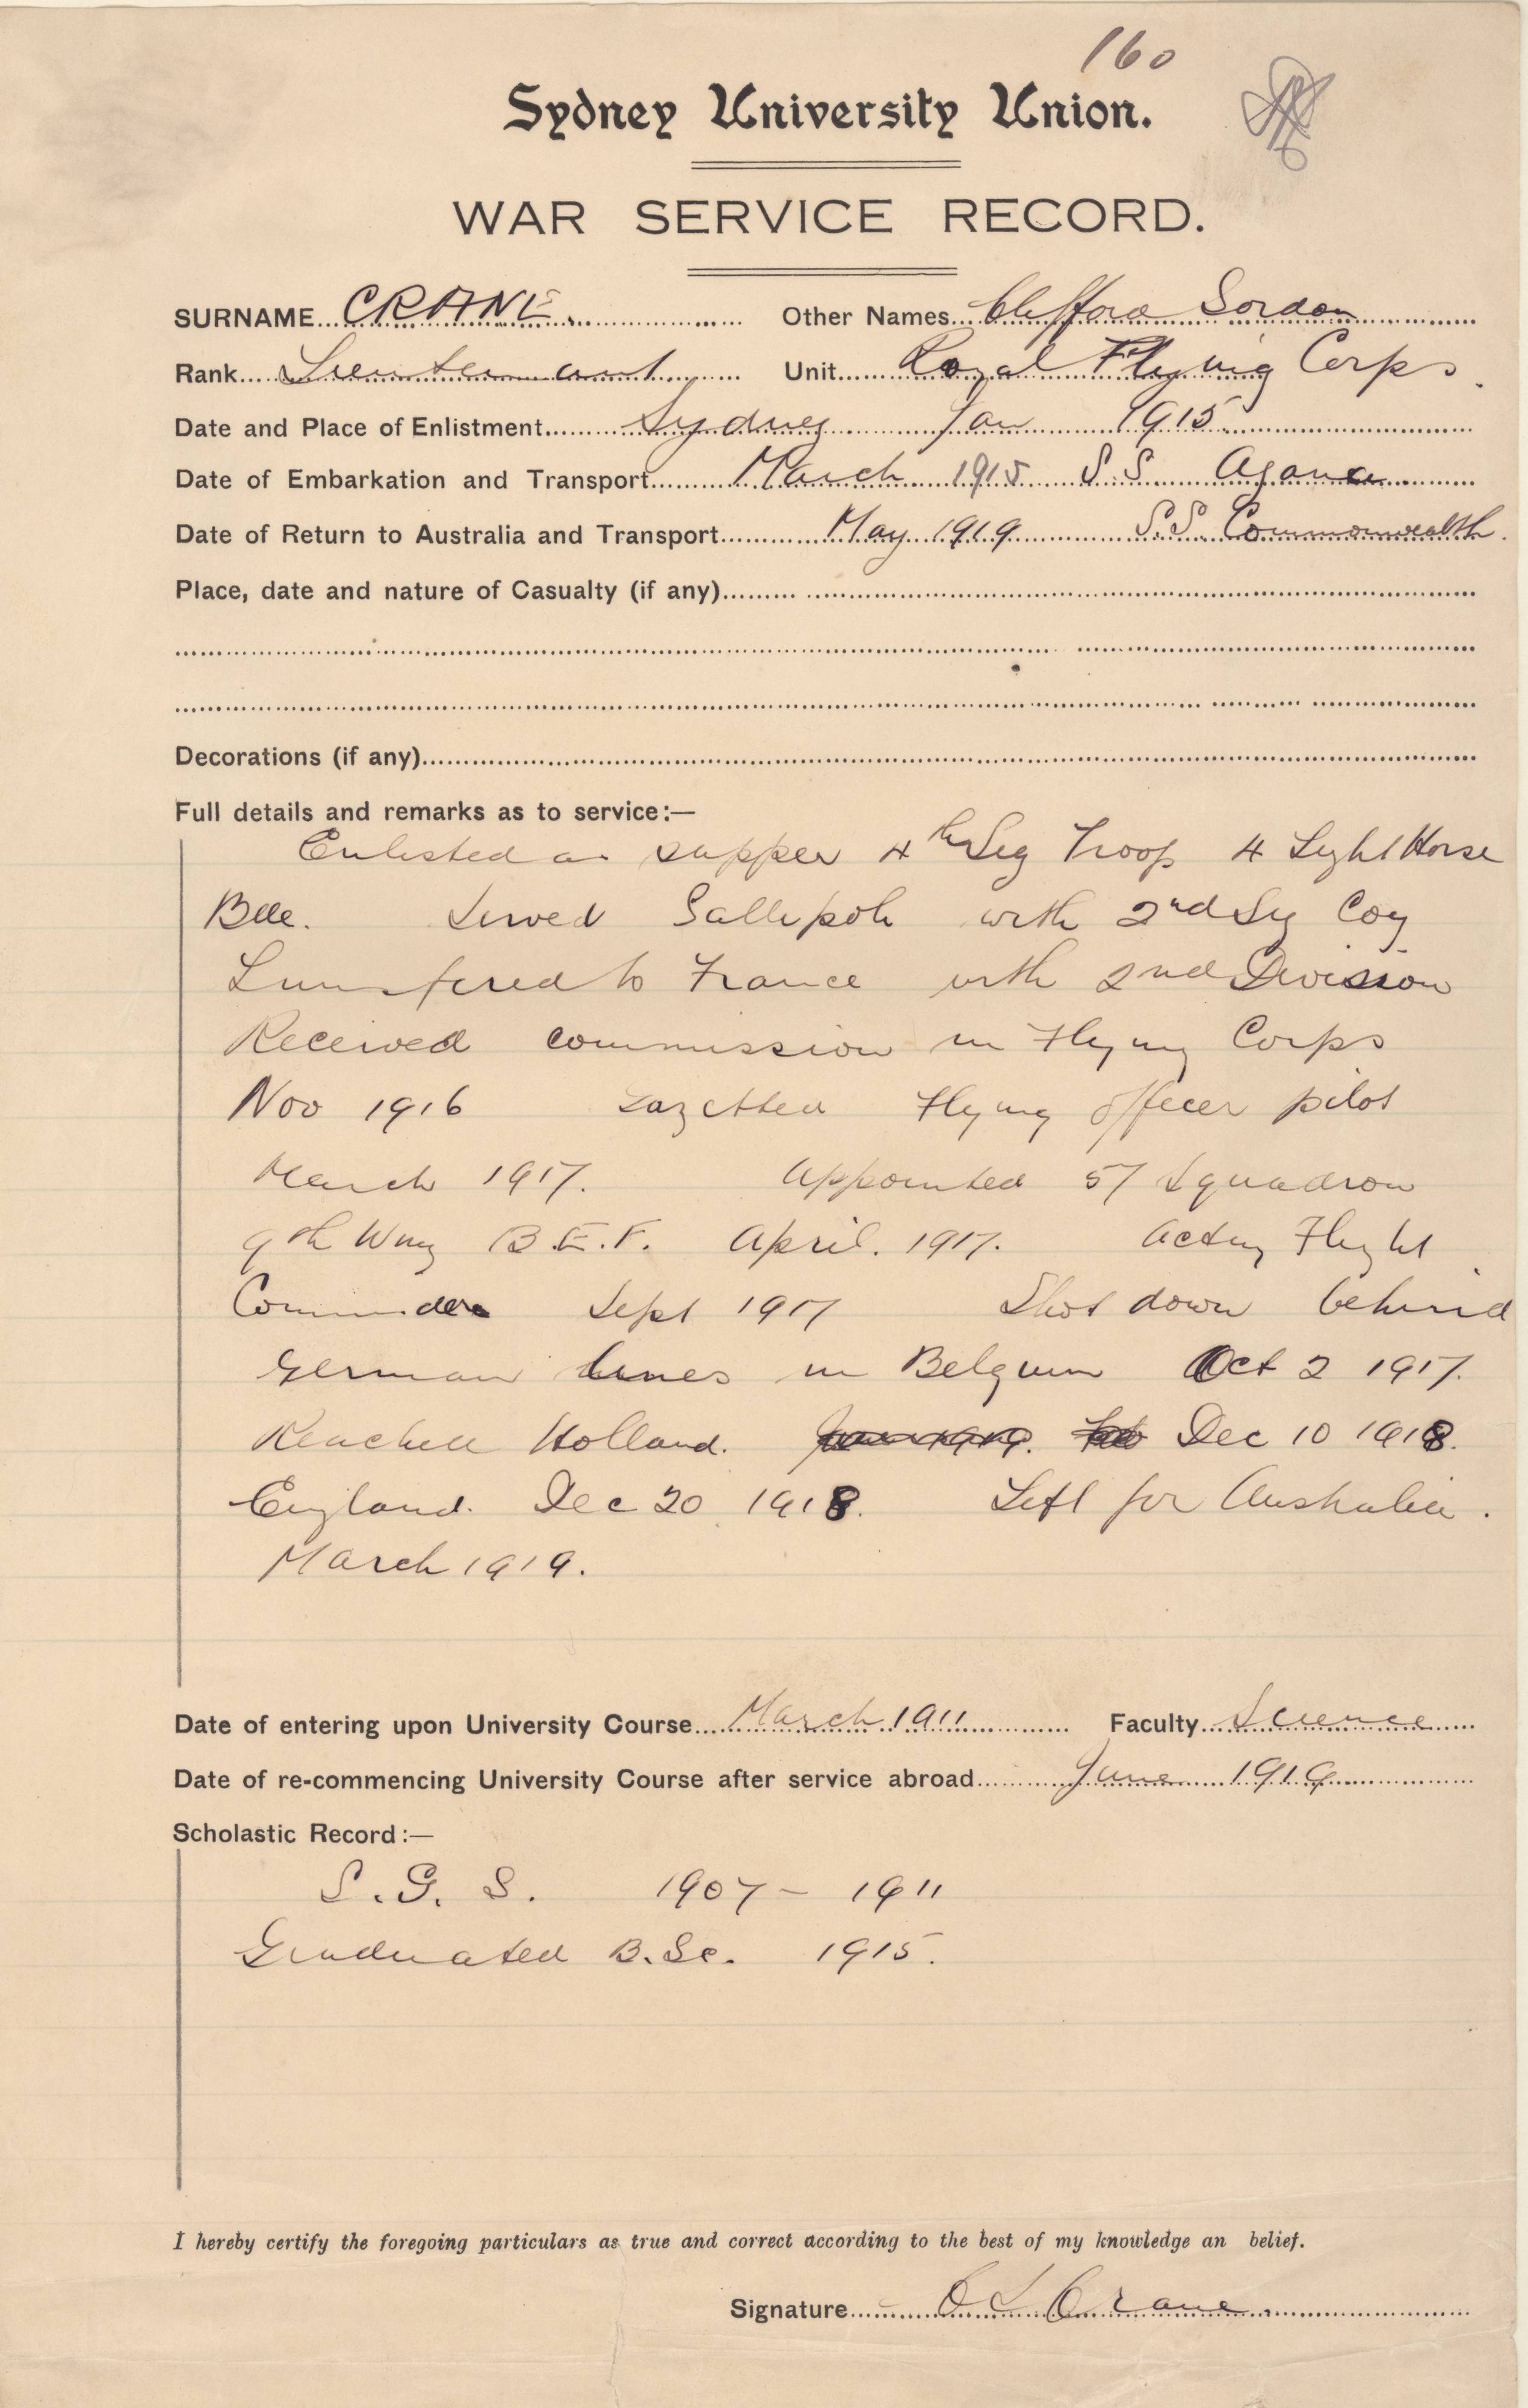 160
Sydney University Union.
WAR SERVICE RECORD.
SURNAME CRANE. Other Names Clifford Gordon
Rank Lieutenant Unit Royal Flying Corps.
Date and Place of Enlistment Sydney Jan 1915
Date of Embarkation and Transport March 1915 S.S.
Date of Return to Australia and Transport May 1919 S.S. Commonwealth.
Place, date and nature of Casualty (if any)
Decorations (if any)
Full details and remarks as to service:—
Enlisted as sapper 4th Sig Troop 4 Light Horse
Bde. Served Gallipoli with 2nd Sig Coy
Transfered to France with 2nd Division
Received commission in Flying Corps
Nov 1916 Gazetted Flying officer pilot
March 1917. Appointed 57 Squadron
9th Wing B.E.F. April. 1917. Acting Flight
Commander Sept 1917 Shot down behind
German lines in Belgium Oct 2 1917.
Reached Holland. Dec 10 1918.
England. Dec 20 1918. Left for Australia.
March 1919.
Date of entering upon University Course March 1911 Faculty Science
Date of re-commencing University Course after service abroad June 1919
Scholastic Record:—
S.G.S. 1907 - 1911
Graduated B.Sc. 1915.
I hereby certify the foregoing particulars as true and correct according to the best of my knowledge an belief.
Signature C G Crane